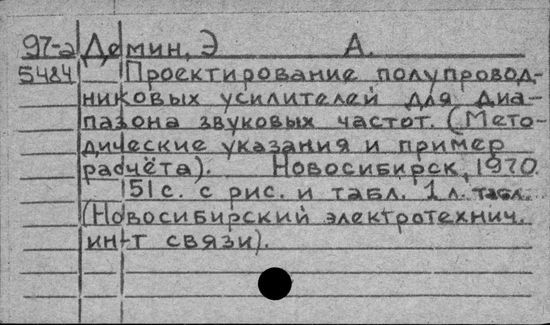 97-2 Демин, Э А.
5484 Проектирование полупровод-
никовых усилителей для диа-
пазона звуковых частот. (Мето-
дические указания и пример
расчёта). Новосибирск, 1970.
51 с. с рис. и табл. 1 л. табл.
(Новосибирский электротехнич.
ин-т связи).